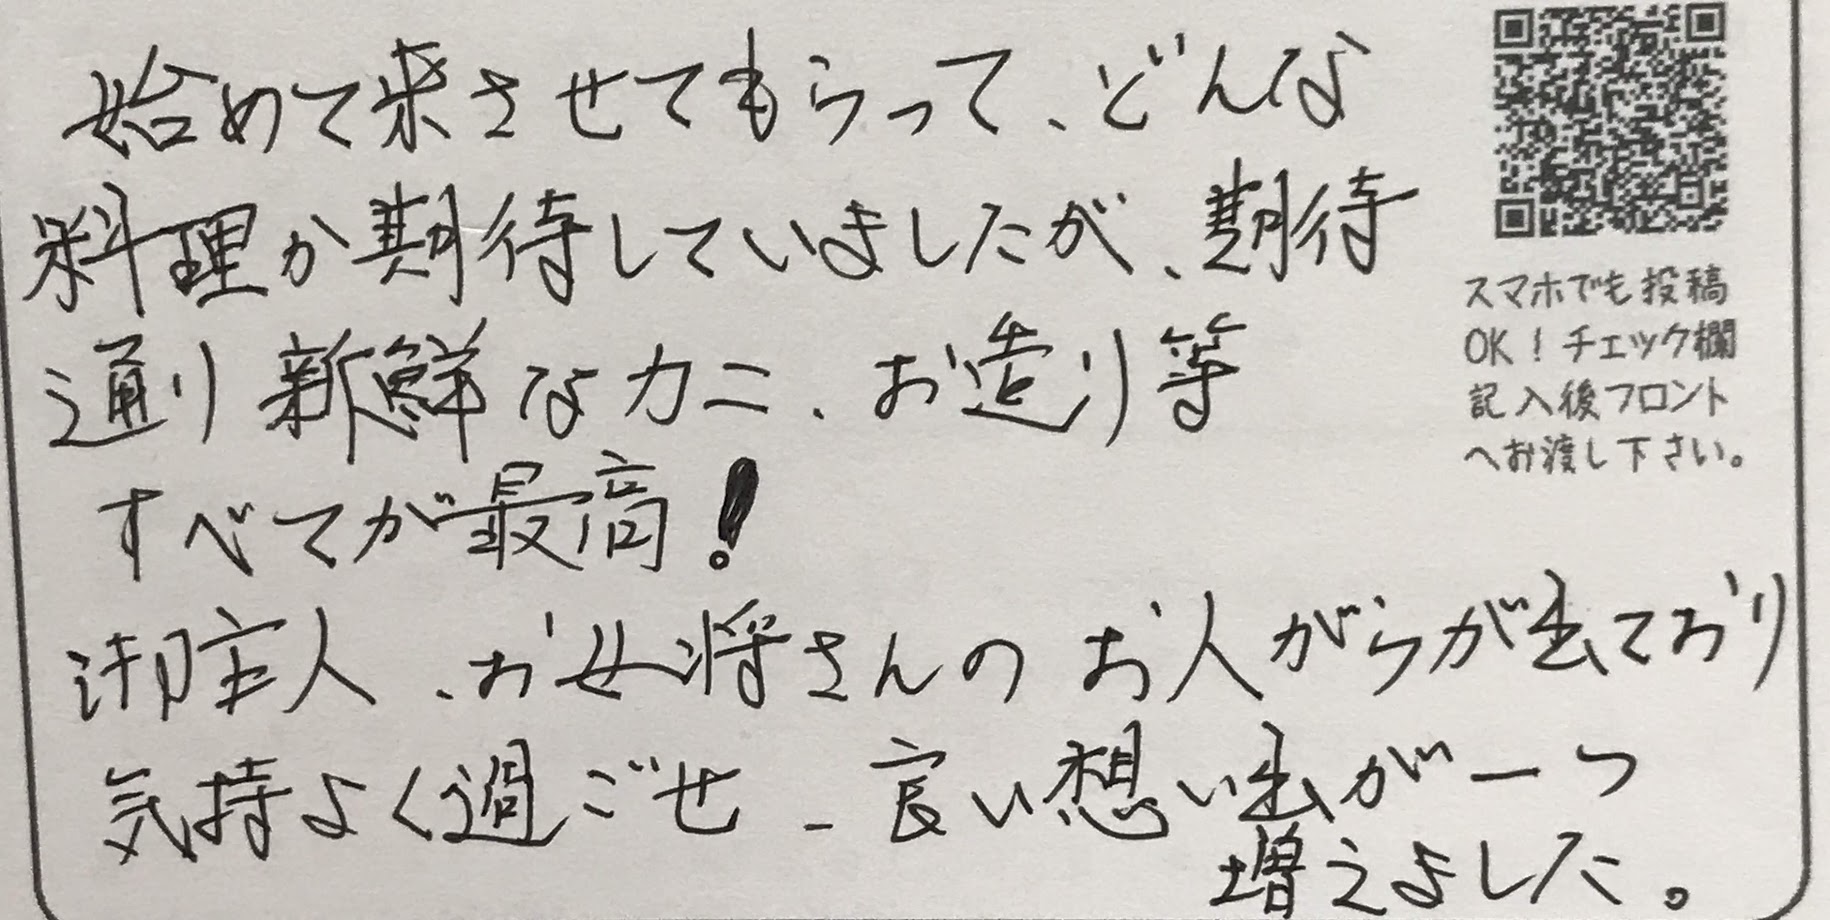 始めて来させてもらって、どんな
料理か期待していましたが、期待
通り新鮮なカニ、お造り等
すべてが最高!
御主人、お女将さんのお人がらが出ており
気持よく過ごせ、良い想い出が一つ
増えました。
スマホでも投稿
OK!チェック欄
記入後フロント
へお渡し下さい。